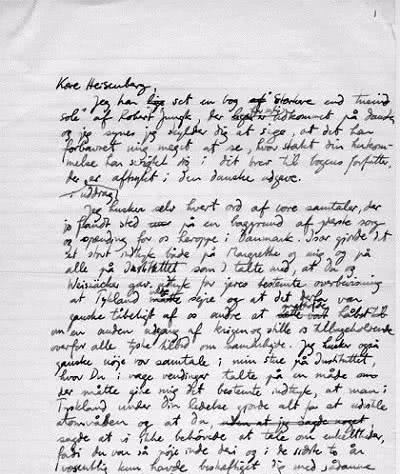 1
Kære Heisenberg,
Jeg har lige set en bog af "Stærkere end tusind
sole" af Robert Jungk, der udkommet på dansk
og jeg synes jeg skylder dig at sige, at det har
forbavset mig meget at se, hvor stærkt din hukom-
melse har sviget dig i dit brev til bogens forfatter,
der er aftrykt i den danske udgave.
i uddrag
Jeg husker selv hvert ord af vore samtaler, der
jo fandt sted på en baggrund af yderste sorg
og spænding for os heroppe i Danmark. Især gjorde det
et stort indtryk både på Margrethe og mig og på
alle på Institutet som I talte med, at Du og
Weizsäcker gav udtryk for jeres bestemte overbevisning
at Tyskland måtte sejre og at det derfor var
ganske tåbeligt af os andre at håbet til
om en anden udgang af krigen og stille os tilbageholdende
overfor alle tyske tilbud om samarbejde. Jeg husker også
ganske nøje vor samtale i min stue på Institutet,
hvor Du i vage vendinger talte på en måde som
der måtte give mig det bestemte indtryk, at man i
Tyskland under Din ledelse gjorde alt for at udvikle
atomvåben og at Du
sagde at vi ikke behøvede at tale om enkeltheder,
fordi du var så nøje inde deri og i de sidste to år
væsentlig kun havde beskæftiget dig med sådanne